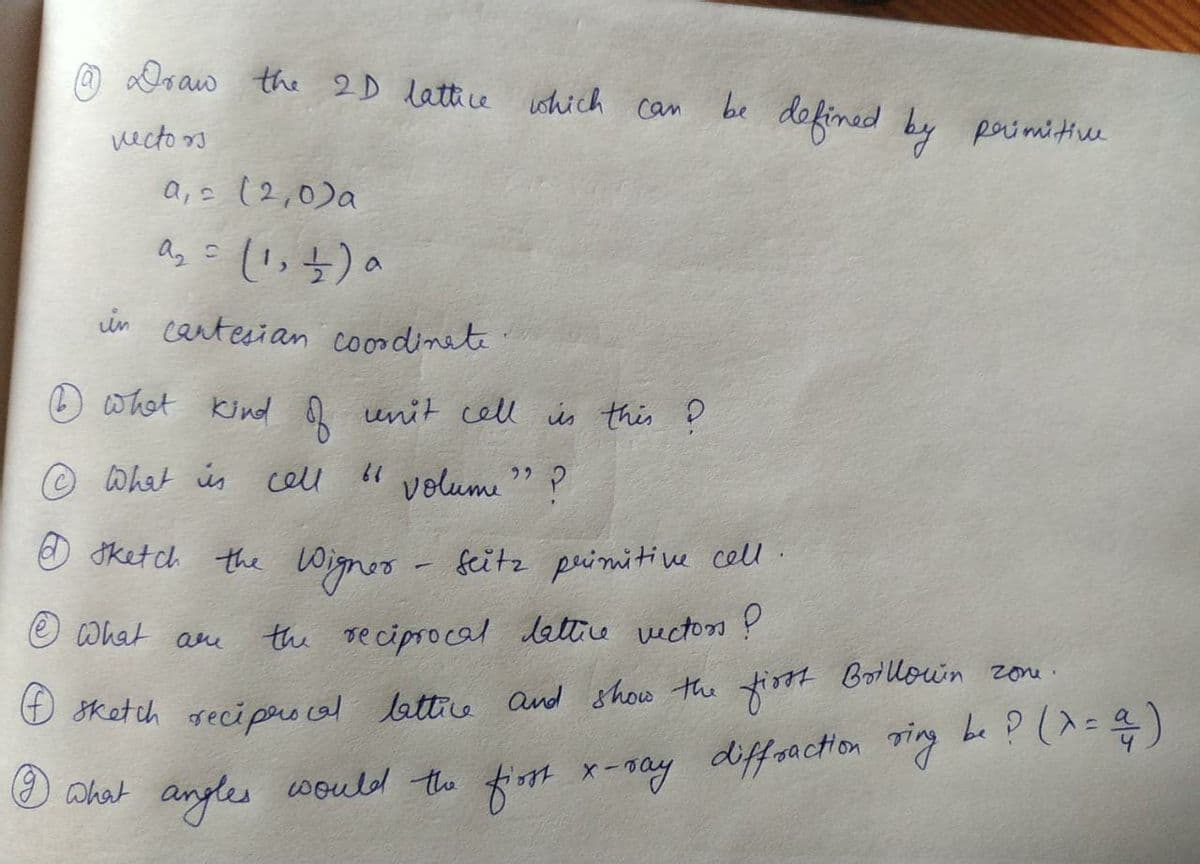 (a) Draw the 2D lattice which can be defined by primitive
vectors
a₁ = (2,0)a
a₂ = (1, 1/2) a
in cartesian coordinate.
(b) what kind of unit cell is this ?
(c) What is cell "volume" ?
(d) sketch the Wigner - Seitz primitive cell.
(e) What are the reciprocal lattice vectors ?
(f) sketch reciprocal lattice and show the first Brillouin zone.
(g) What angles would the first x-ray diffraction ring be ? (λ = a/4)